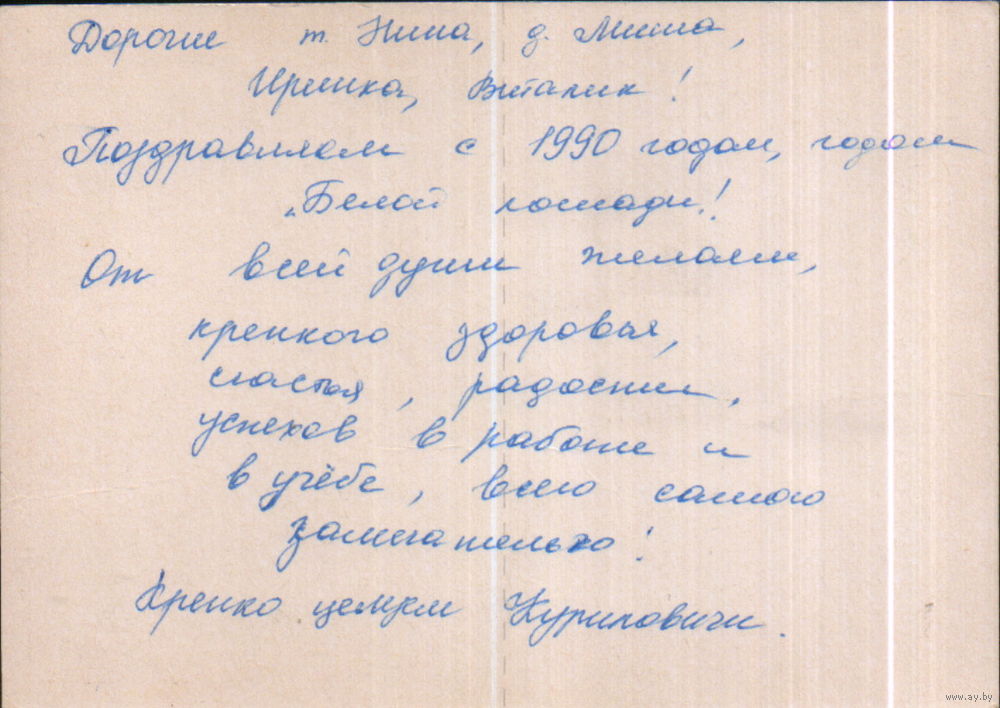 Дорогие т. Нина, д. Миша,
Иринка, Виталик!
Поздравляем с 1990 годом, годом
„Белой лошади!
От всей души желаем,
крепкого здоровья,
счастья, радости,
успехов в работе и
в учёбе, всего самого
замечательного!
Крепко целуем Куриловичи.
www.ay.by